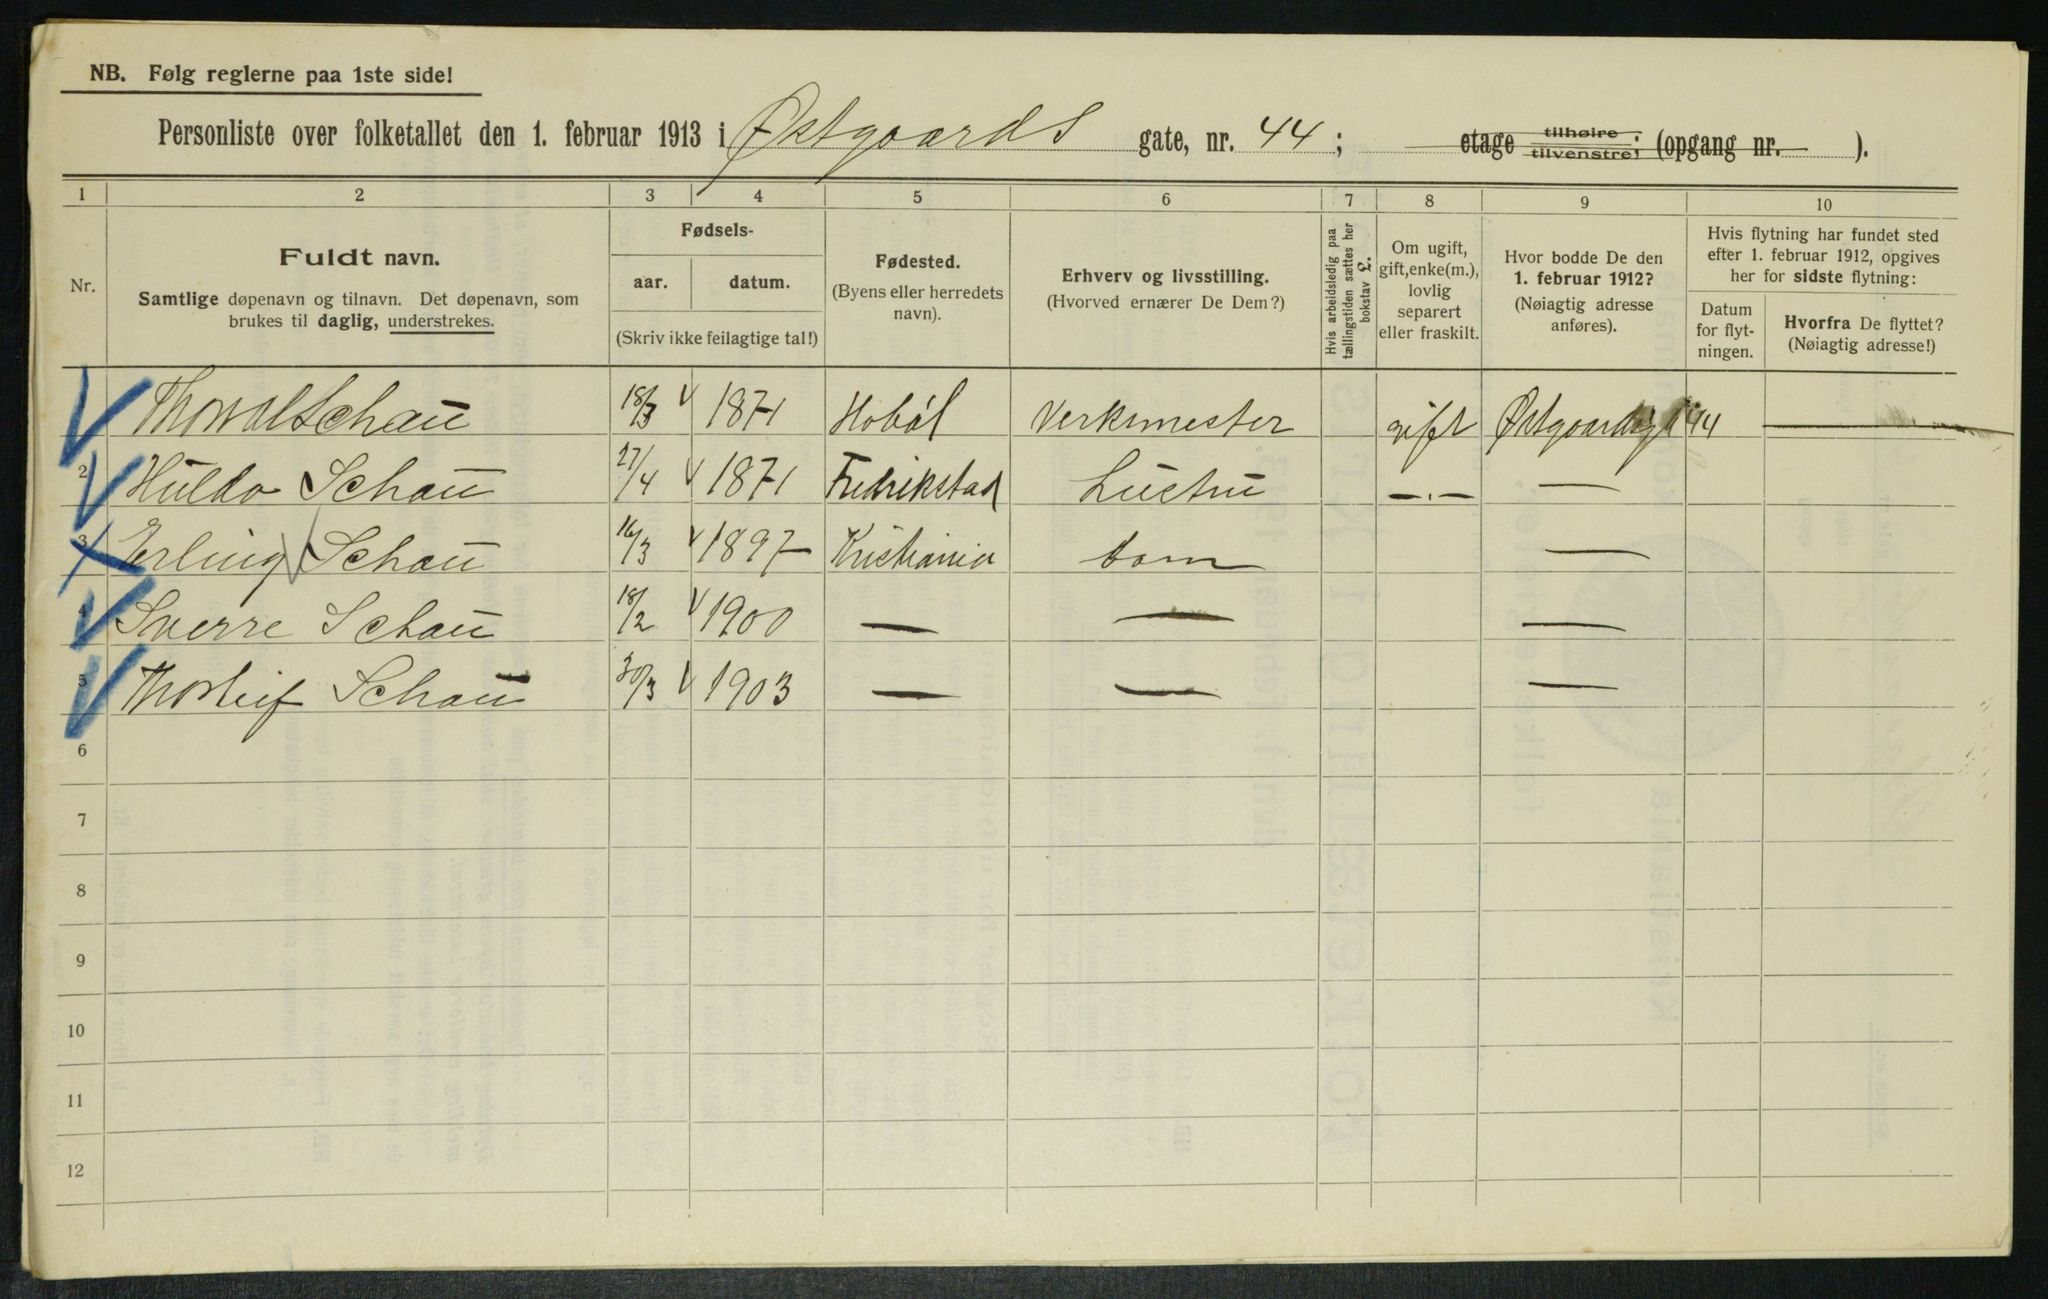 NB. Følg reglerne paa 1ste side!
Personliste over folketallet den 1. februar 1913 i Østgaards gate, nr. 44; etage tilhøire tilvenstre; (opgang nr. ).
1 2 3 4 5 6 7 8 9 10
Nr.
Fuldt navn.
Samtlige døpenavn og tilnavn. Det døpenavn, som
brukes til daglig, understrekes.
Fødsels-
aar. datum.
(Skriv ikke feilagtige tal!)
Fødested.
(Byens eller herredets
navn).
Erhverv og livsstilling.
(Hvorved ernærer De Dem?)
Hvis arbeidsledig paa
tællingstiden sættes her
bokstav L.
Om ugift,
gift, enke(m.),
lovlig
separert
eller fraskilt.
Hvor bodde De den
1. februar 1912?
(Nøiagtig adresse
anføres).
Hvis flytning har fundet sted
efter 1. februar 1912, opgives
her for sidste flytning:
Datum
for flyt-
ningen.
Hvorfra De flyttet?
(Nøiagtig adresse!)
Thorvald Schau 18/3 1871 Hobøl Verksmester gift Østgaardsgt 44 —
2 Hulda Schau 27/4 1871 Fredrikstad Hustru —·— —
3 Erling Schau 16/3 1897 Kristiania barn —
4 Sverre Schau 18/2 1900 — — —
5 Thorleif Schau 30/3 1903 — — —
6
7
8
9
10
11
12